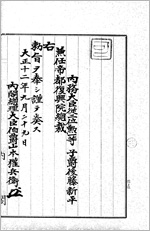 内務大臣正三位勲一等子爵後藤新平
兼任帝都復興院総裁
右
勅旨ヲ奉シ謹テ奏ス
大正十二年九月二十九日
内閣総理大臣伯爵山本権兵衛
内閣